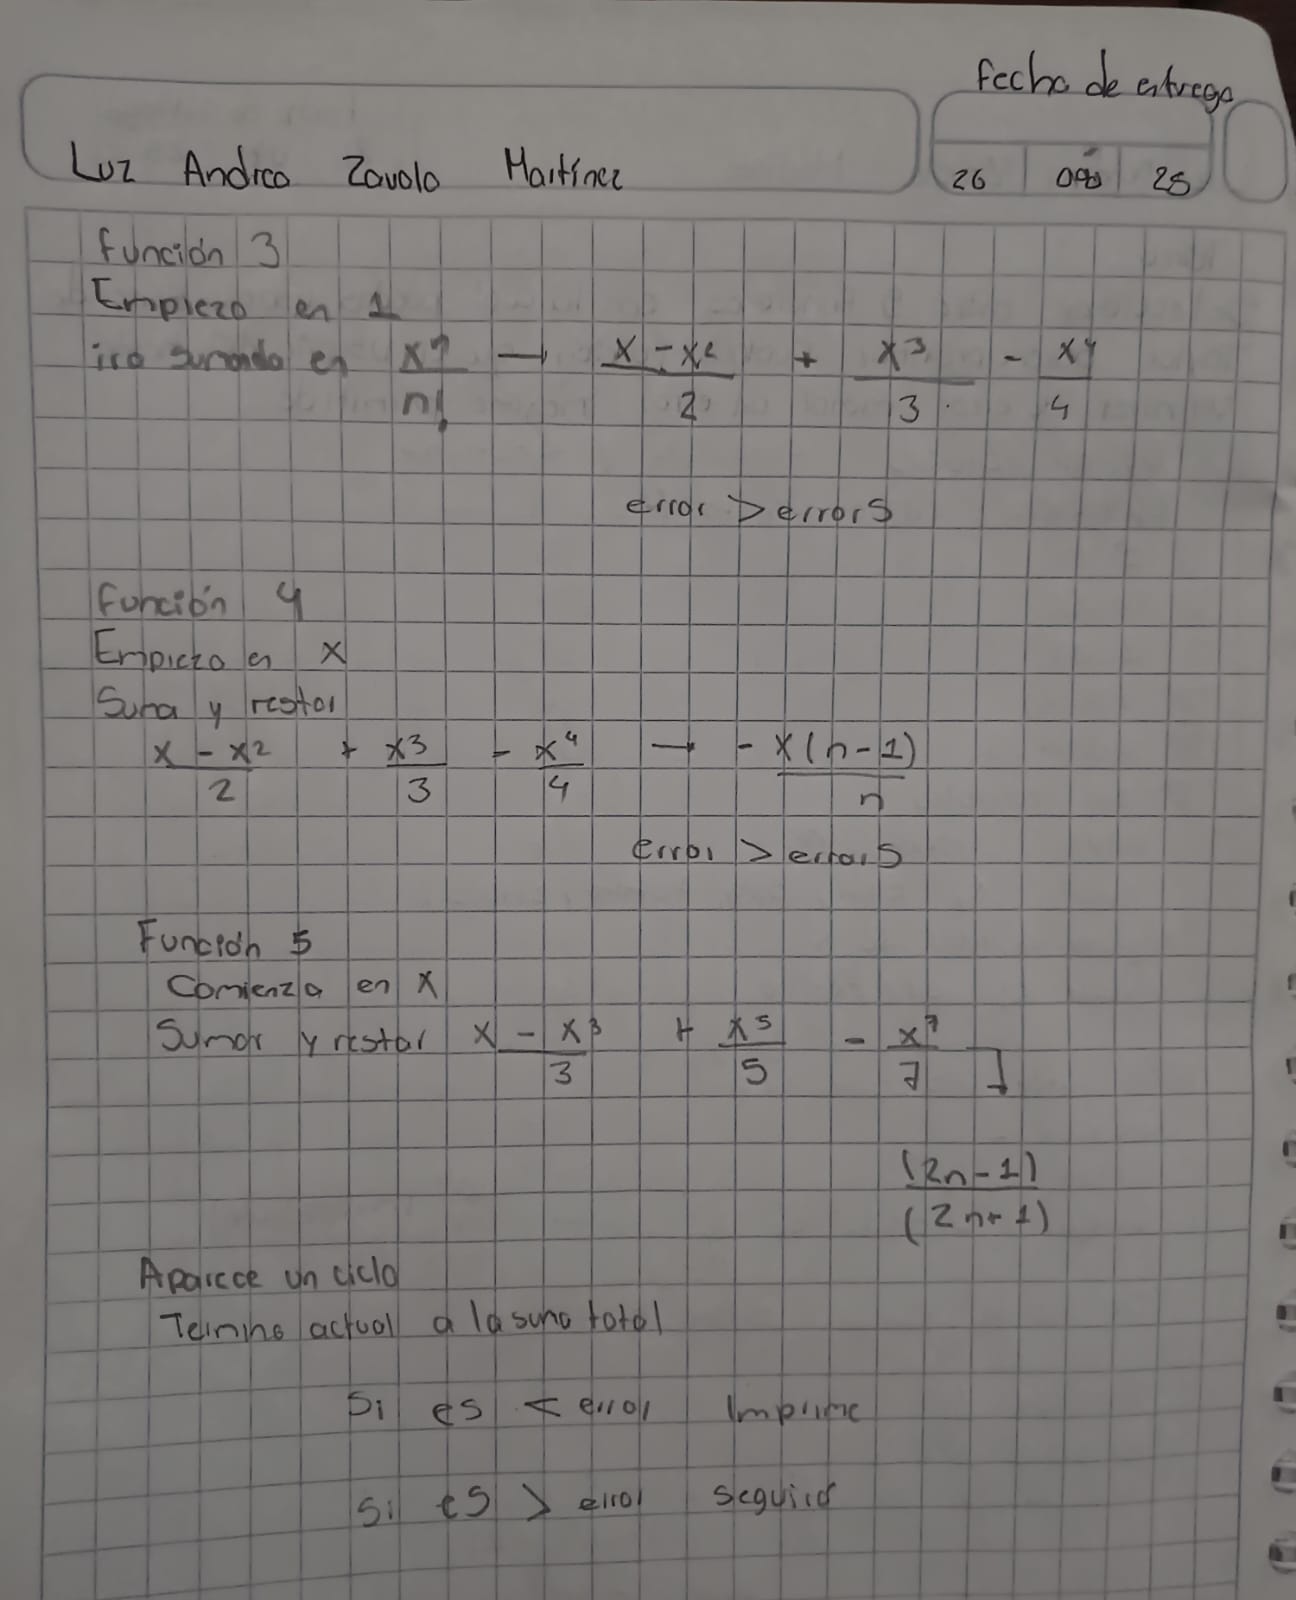 Fecha de entrega
Luz Andrea Zavala Martínez
26 25
Función 3
Empieza en 1
ira sumando en x^n/n! → x - x^2/2 + x^3/3 - x^4/4
error > errorS
Función 4
Empieza en x
Suma y restar
x - x^2/2 + x^3/3 - x^4/4 → - x(n-1)/n
error > errorS
Función 5
Comienza en x
Sumar y restar x - x^3/3 + x^5/5 - x^7/7
(2n-1)/(2n+1)
Aparece un ciclo
Termino actual a la suma total
Si es < error Imprime
Si es > error seguira